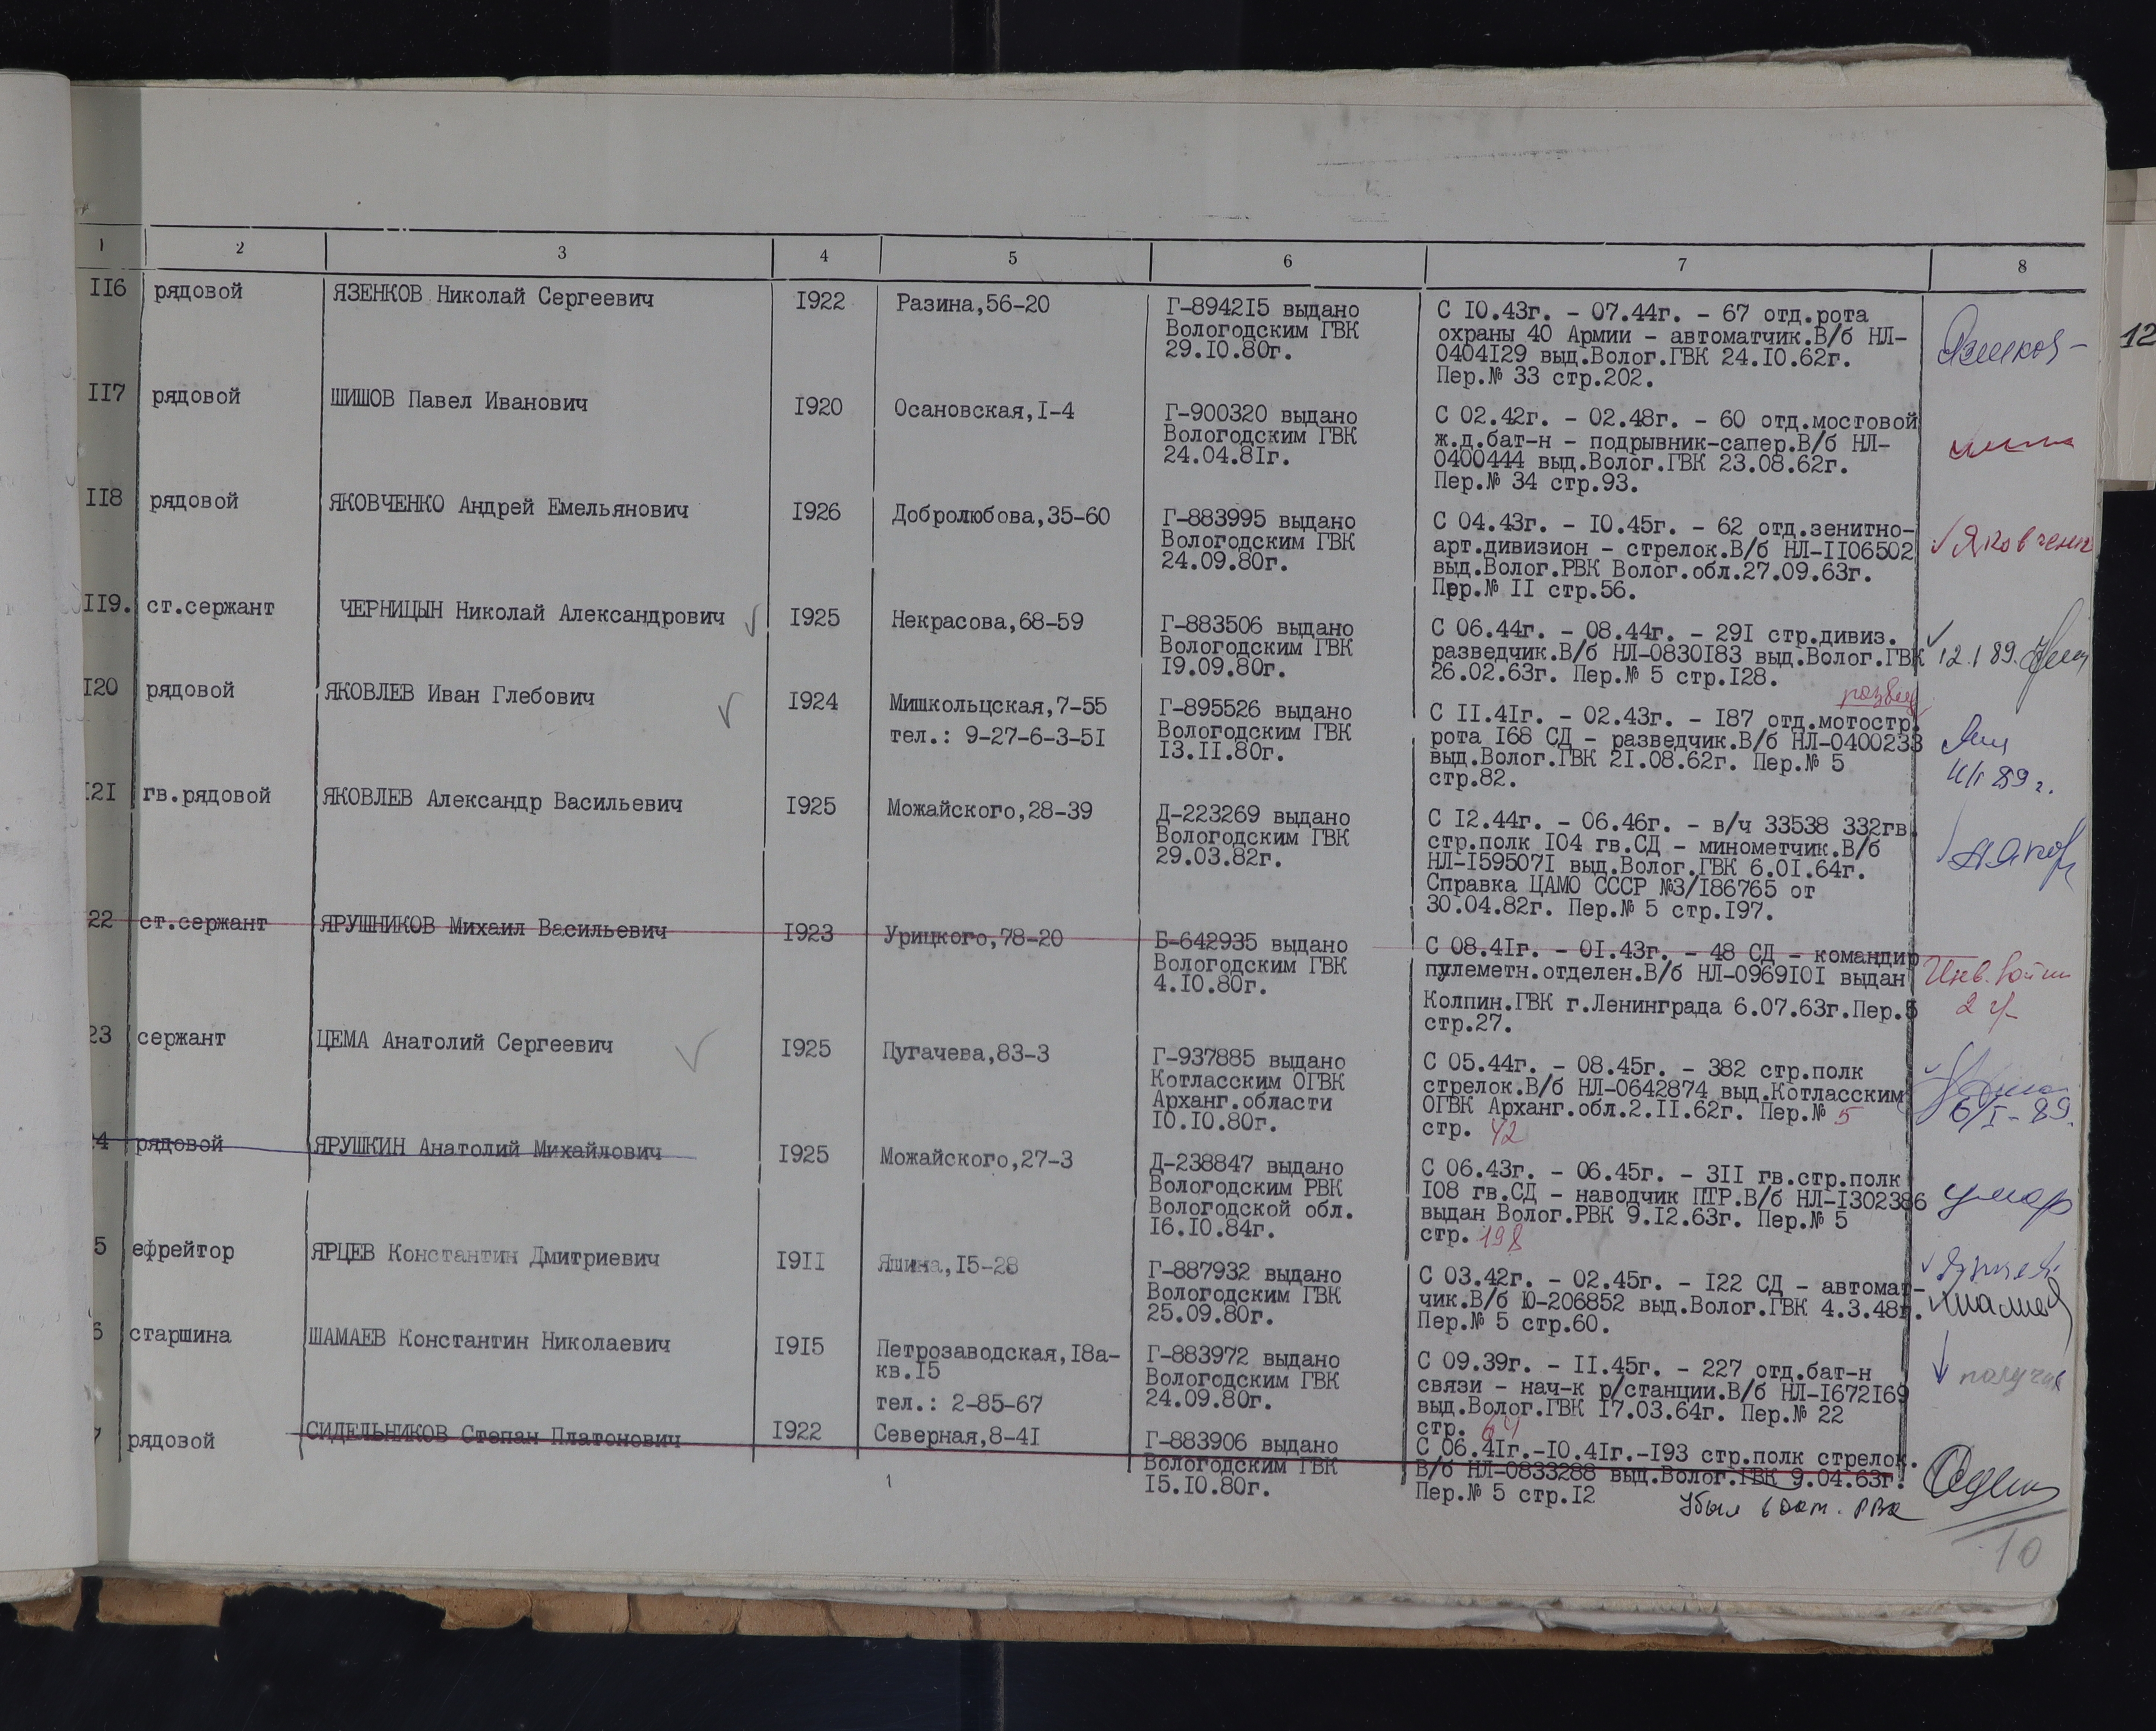 1 2 3 4 5 6 7 8
II6 рядовой ЯЗЕНКОВ Николай Сергеевич I922 Разина,56-20 Г-8942I5 выдано С I0.43г. - 07.44г. - 67 отд.рота
Вологодским ГВК охраны 40 Армии - автоматчик.В/б НЛ-
29.I0.80г. 0404I29 выд.Волог.ГВК 24.I0.62г.
Пер.№ 33 стр.202.
12
II7 рядовой ШИШОВ Павел Иванович I920 Осановская,I-4 Г-900320 выдано С 02.42г. - 02.48г. - 60 отд.мостовой
Вологодским ГВК ж.д.бат-н - подрывник-сапер.В/б НЛ-
24.04.8Iг. 0400444 выд.Волог.ГВК 23.08.62г.
Пер.№ 34 стр.93.
II8 рядовой ЯКОВЧЕНКО Андрей Емельянович I926 Добролюбова,35-60 Г-883995 выдано С 04.43г. - I0.45г. - 62 отд.зенитно-
Вологодским ГВК арт.дивизион - стрелок.В/б НЛ-II06502
24.09.80г. выд.Волог.РВК Волог.обл.27.09.63г.
Пер.№ II стр.56.
II9. ст.сержант ЧЕРНИЦЫН Николай Александрович I925 Некрасова,68-59 Г-883506 выдано С 06.44г. - 08.44г. - 29I стр.дивиз.
Вологодским ГВК разведчик.В/б НЛ-0830I83 выд.Волог.ГВК 12.1 89.
I9.09.80г. 26.02.63г. Пер.№ 5 стр.I28.
развед
I20 рядовой ЯКОВЛЕВ Иван Глебович I924 Мишкольцская,7-55 Г-895526 выдано С II.4Iг. - 02.43г. - I87 отд.мотостр.
тел.: 9-27-6-3-5I Вологодским ГВК рота I68 СД - разведчик.В/б НЛ-0400233
I3.II.80г. выд.Волог.ГВК 2I.08.62г. Пер.№ 5
стр.82.
I2I гв.рядовой ЯКОВЛЕВ Александр Васильевич I925 Можайского,28-39 Д-223269 выдано С I2.44г. - 06.46г. - в/ч 33538 332гв.
Вологодским ГВК стр.полк I04 гв.СД - минометчик.В/б
29.03.82г. НЛ-I59507I выд.Волог.ГВК 6.0I.64г.
Справка ЦАМО СССР №3/I86765 от
30.04.82г. Пер.№ 5 стр.I97.
22 ст.сержант ЯРУШНИКОВ Михаил Васильевич I923 Урицкого,78-20 Б-642935 выдано С 08.4Iг. - 0I.43г. - 48 СД - командир
Вологодским ГВК пулеметн.отделен.В/б НЛ-0969I0I выдан Инв. войны
4.I0.80г. Колпин.ГВК г.Ленинграда 6.07.63г.Пер.5 2 гр
стр.27.
23 сержант ЦЕМА Анатолий Сергеевич I925 Пугачева,83-3 Г-937885 выдано С 05.44г. - 08.45г. - 382 стр.полк
Котласским ОГВК стрелок.В/б НЛ-0642874 выд.Котласским
Арханг.области ОГВК Арханг.обл.2.II.62г. Пер.№ 5 6/I-89.
I0.I0.80г. стр. 42
4 рядовой ЯРУШКИН Анатолий Михайлович I925 Можайского,27-3 Д-238847 выдано С 06.43г. - 06.45г. - 3II гв.стр.полк
Вологодским РВК I08 гв.СД - наводчик ПТР.В/б НЛ-I302386 умер
Вологодской обл. выдан Волог.РВК 9.I2.63г. Пер.№ 5
I6.I0.84г. стр. 198
5 ефрейтор ЯРЦЕВ Константин Дмитриевич I9II Яшина,I5-28 Г-887932 выдано С 03.42г. - 02.45г. - I22 СД - автомат-
Вологодским ГВК чик.В/б Ю-206852 выд.Волог.ГВК 4.3.48г.
25.09.80г. Пер.№ 5 стр.60.
6 старшина ШАМАЕВ Константин Николаевич I9I5 Петрозаводская,I8а- Г-883972 выдано С 09.39г. - II.45г. - 227 отд.бат-н
кв.I5 Вологодским ГВК связи - нач-к р/станции.В/б НЛ-I672I69 получил
тел.: 2-85-67 24.09.80г. выд.Волог.ГВК I7.03.64г. Пер.№ 22
стр. 64
7 рядовой СИДЕЛЬНИКОВ Степан Платонович I922 Северная,8-4I Г-883906 выдано С 06.4Iг.-I0.4Iг.-I93 стр.полк стрелок.
Вологодским ГВК В/б НЛ-0833288 выд.Волог.ГВК 9.04.63г.
I5.I0.80г. Пер.№ 5 стр.I2
Убыл в Окт. РВК
10